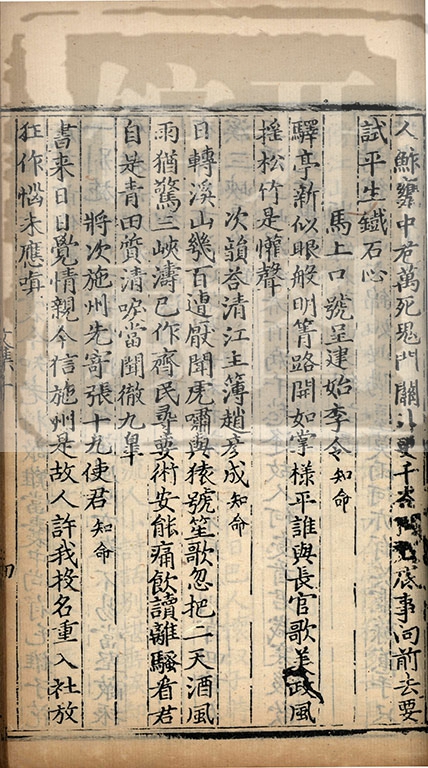 人鮓甕中危萬死鬼門關更千岑底事向前去要
試平生鐡石心
馬上口號呈建始李令知命
驛亭新似眼般明箐路開如掌樣平誰與長官歌美政風
搖松竹是懽聲
次韻荅清江主簿趙彦成知命
日轉溪山幾百遭厭聞虎嘯與猿號笙歌忽把二天酒風
雨猶驚三峽濤已作齊民尋要術安能痛飲讀離騷看君
自是青田質清唳當聞徹九皐
將次施州先寄張十九使君知命
書来日日覺情親今信施州是故人許我投名重入社放
狂作惱未應嗔